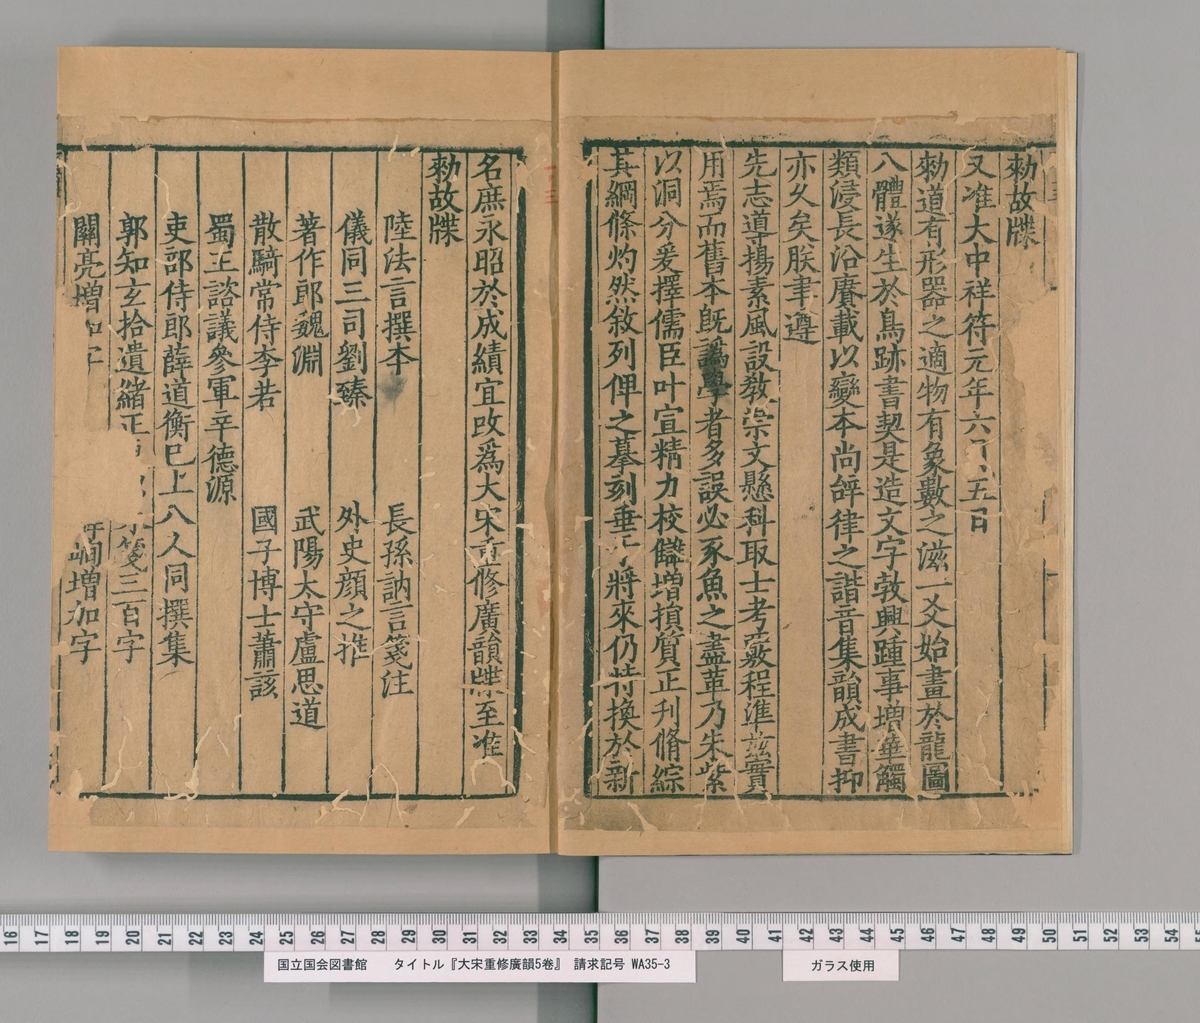 勑故牒
又准大中祥符元年六月五日
勑道有形器之適物有象數之滋一爻始畫於龍圖
八體遂生於鳥跡書契是造文字敦興踵事增華觸
類浸長沿賡載以變本尚辝律之諧音集韻成書抑
亦久矣朕聿遵
先志導揚素風設教崇文懸科取士考覈程準茲實
用焉而舊本既譌學者多誤必豕魚之盡革乃朱紫
以洞分爰擇儒臣叶宣精力校讎增損質正刊脩綜
其綱條灼然敘列俾之摹刻垂于將來仍特換於新
名庶永昭於成績宜改爲大宋重修廣韻牒至准
勑故牒
陸法言撰本 長孫訥言箋注
儀同三司劉臻 外史顏之推
著作郎魏淵 武陽太守盧思道
散騎常侍李若 國子博士蕭該
蜀王諮議參軍辛德源
吏部侍郎薛道衡已上八人同撰集
郭知玄拾遺緒正 箋三百字
關亮增加字 峒增加字
16 17 18 19 20 21 22 23 24 25 26 27 28 29 30 31 32 33 34 35 36 37 38 39 40 41 42 43 44 45 46 47 48 49 50 51 52 53 54
国立国会図書館 タイトル『大宋重修廣韻5巻』 請求記号 WA35-3
ガラス使用